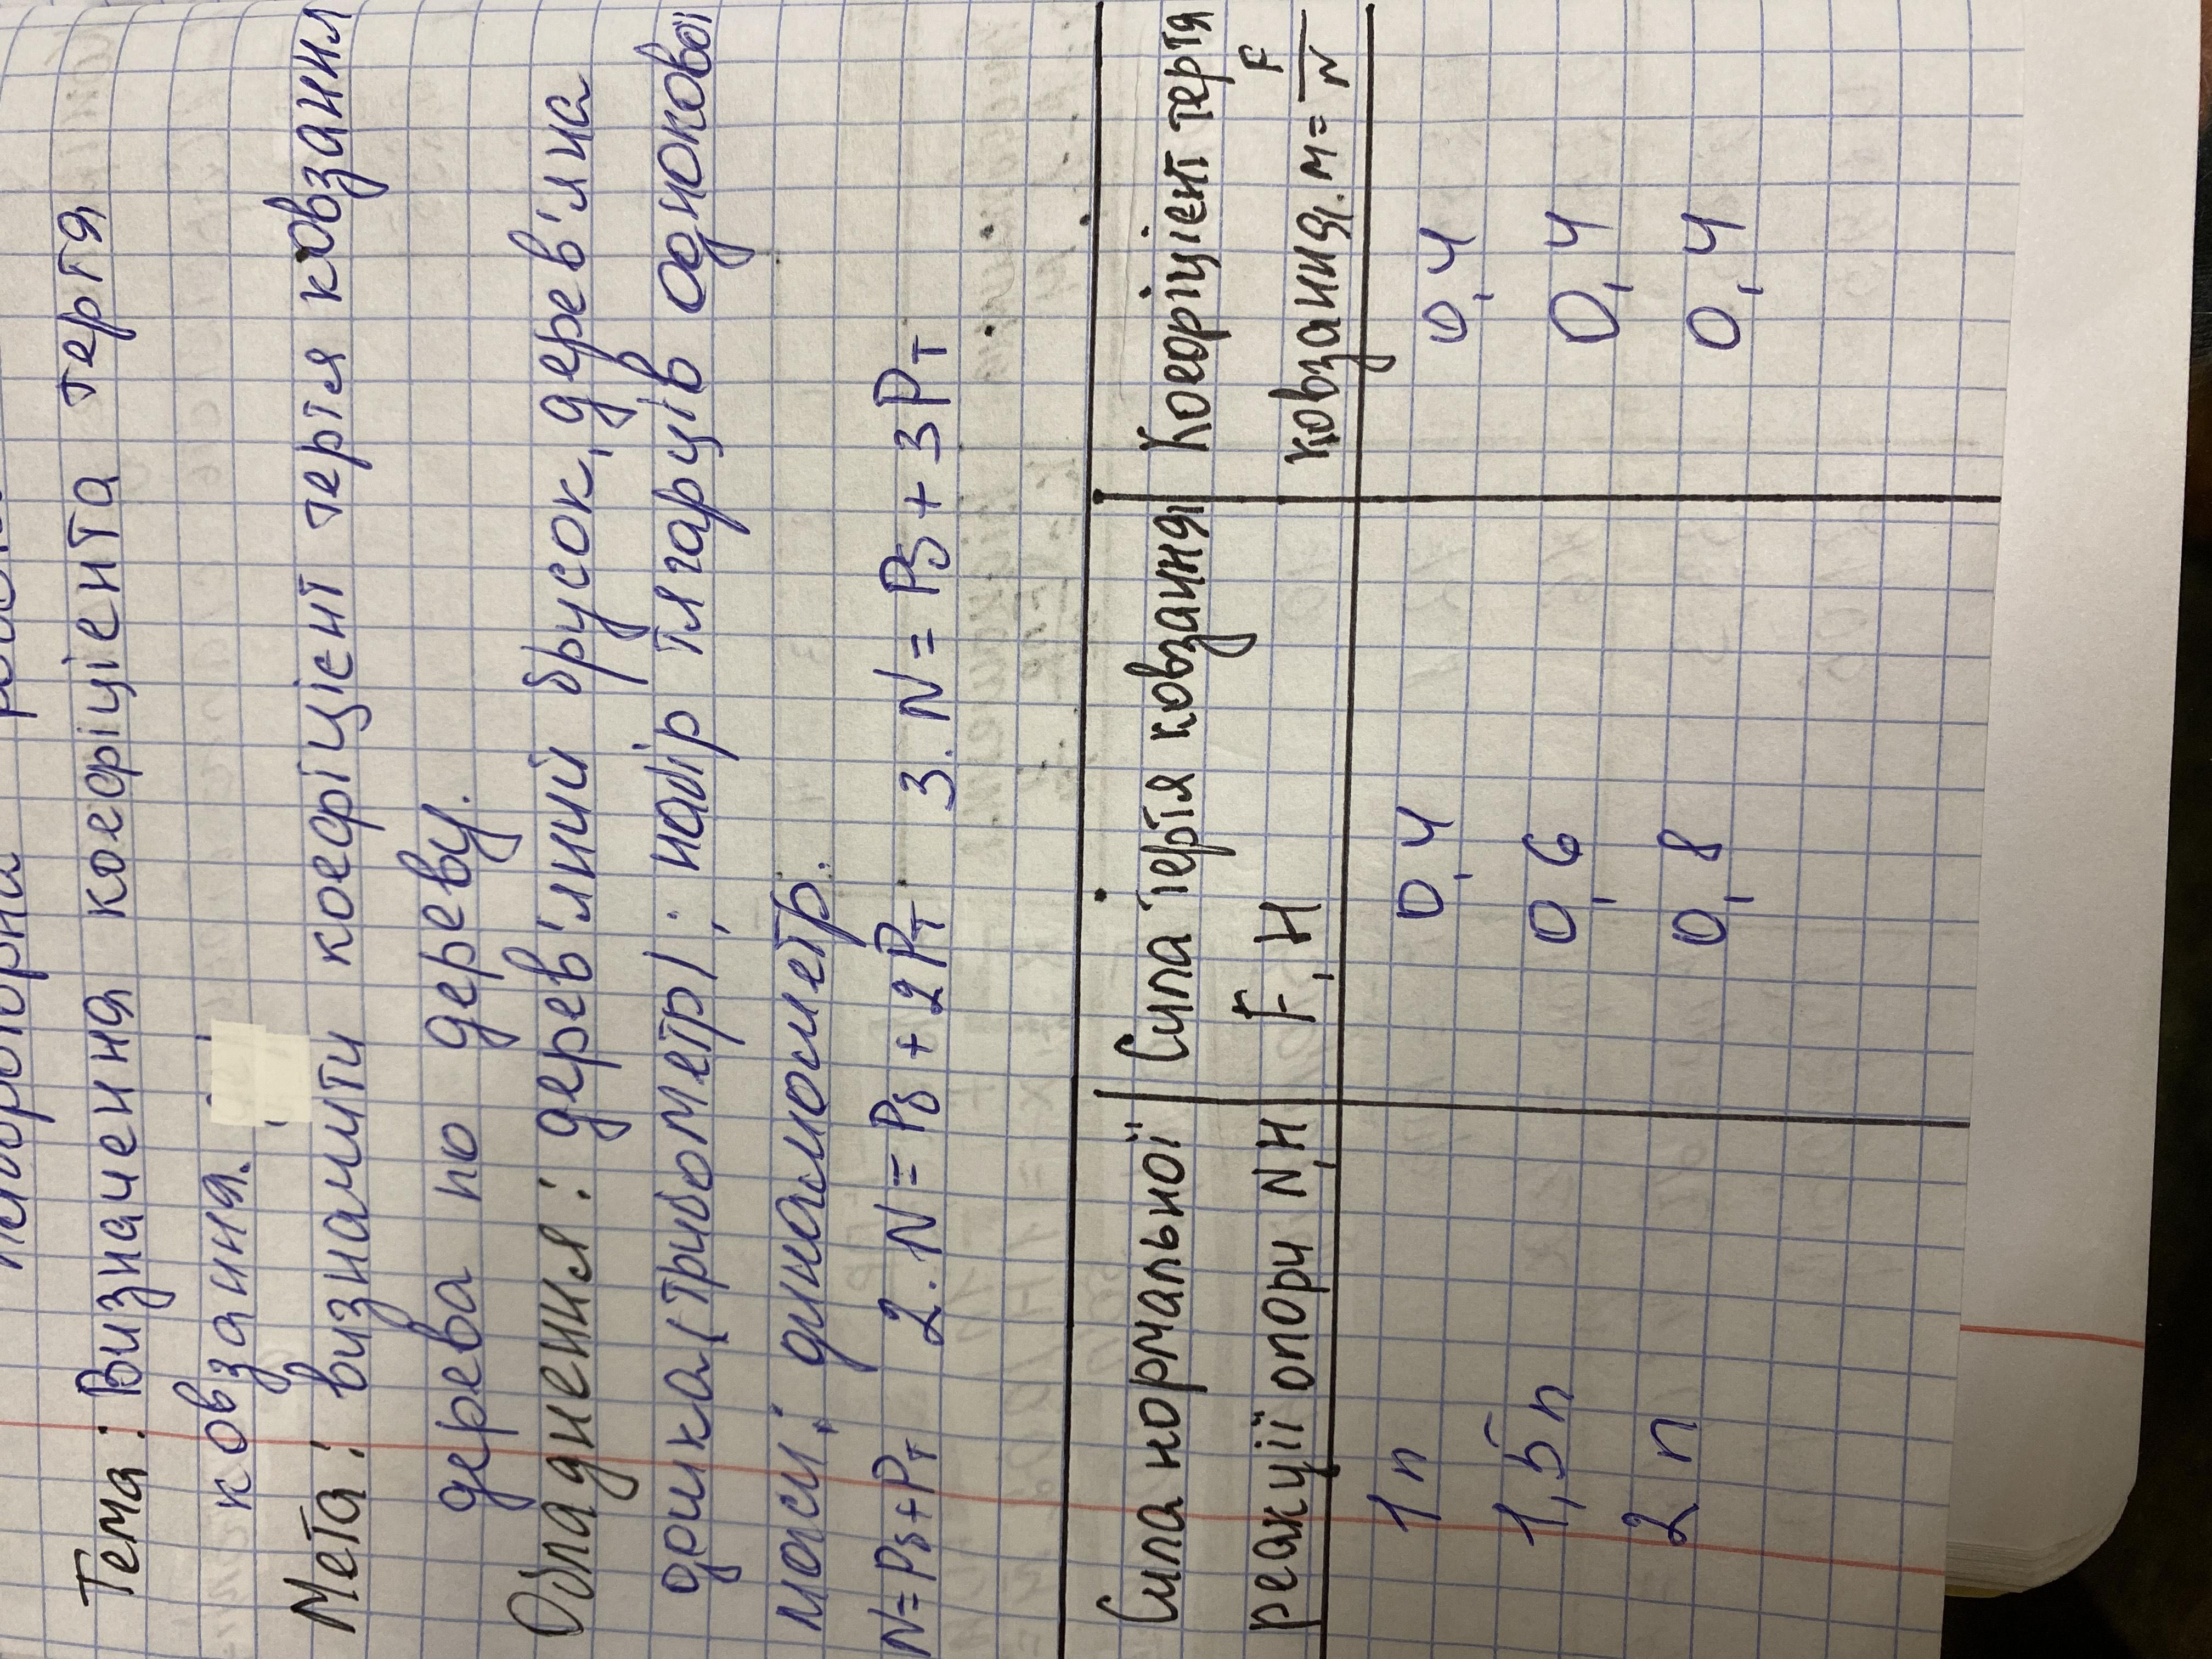 Лабораторна робота
Тема: Визначення коефіцієнта тертя
ковзання.
Мета: визначити коефіцієнт тертя ковзання
дерева по дереву.
Обладнення: дерев'яний брусок, дерев'яна
дошка (трибометр); набір тягарців однокової
маси; динамометр.
N=Pб+Pт 2. N=Pб+2Pт 3. N=Pб+3Pт
Сила нормальної | Сила тертя ковзання | Коефіцієнт тертя
реакції опори N,H F,H ковзання. м=F/N
1n 0,4 0,4
1,5n 0,6 0,4
2n 0,8 0,4